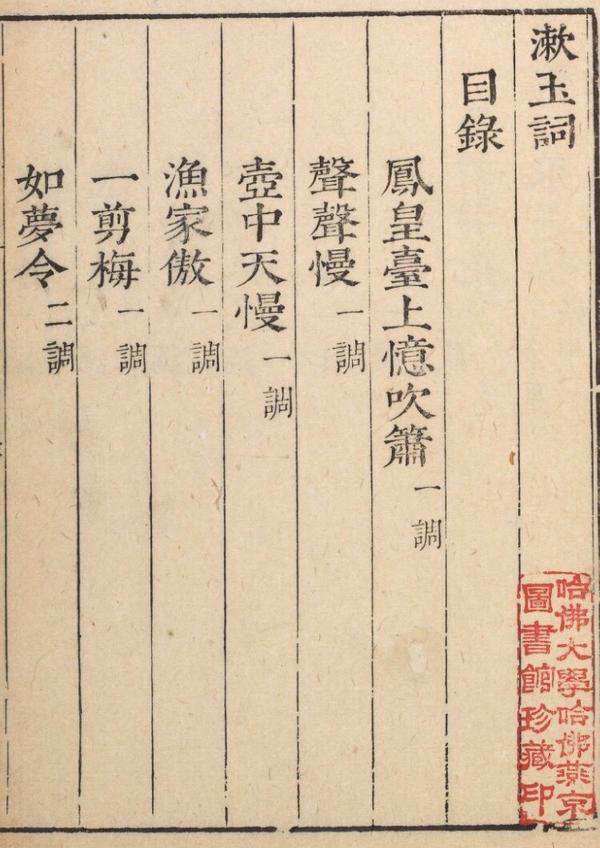 漱玉詞
目錄
鳳皇臺上憶吹簫一調
聲聲慢一調
壺中天慢一調
漁家傲一調
一剪梅一調
如夢令二調
哈佛大學哈佛燕京
圖書館珍藏印